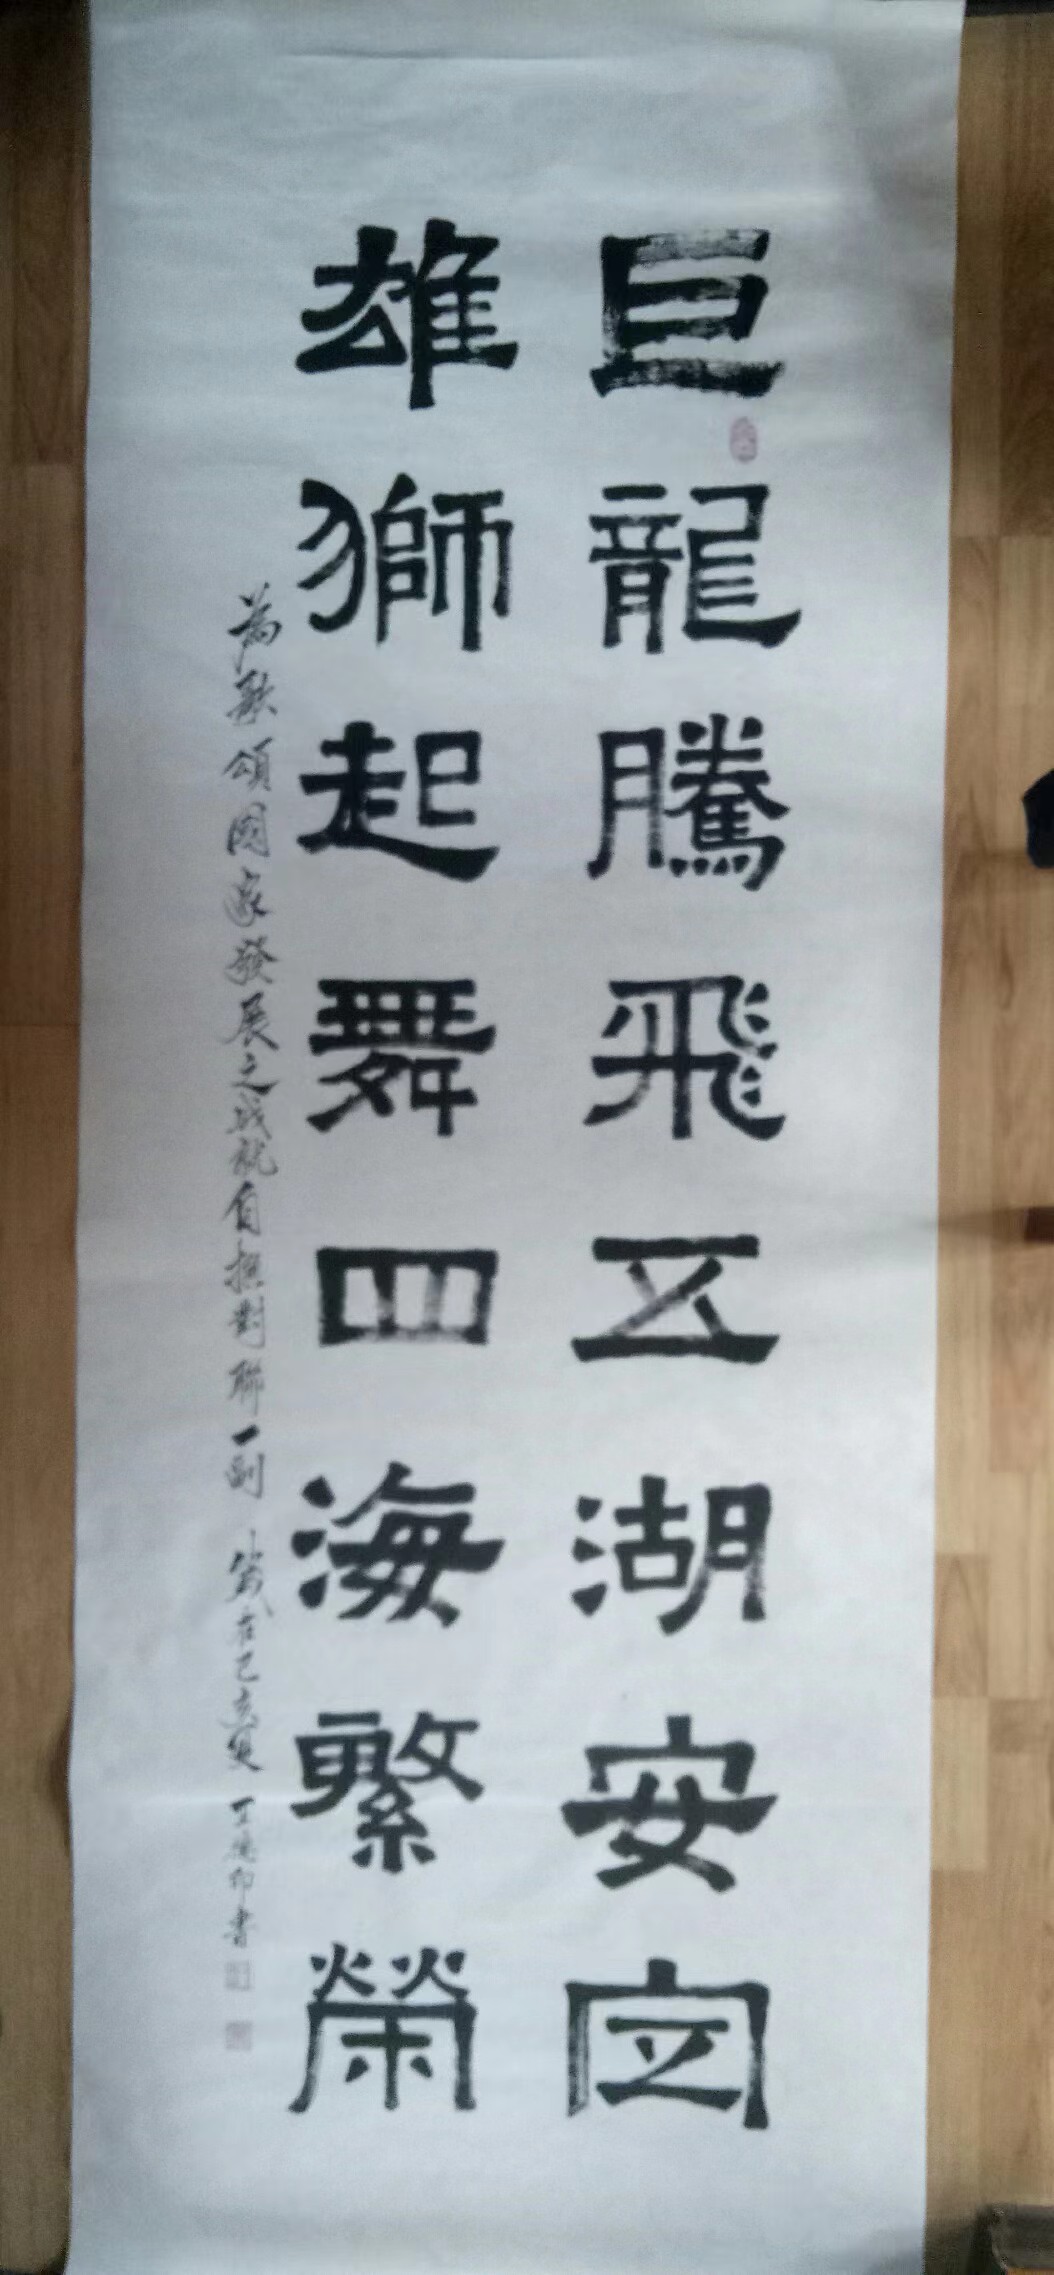 巨龍騰飛五湖安定
雄獅起舞四海繁榮
為歌頌國家發展之成就自撰對聯一副 歲在己亥夏 王德印書